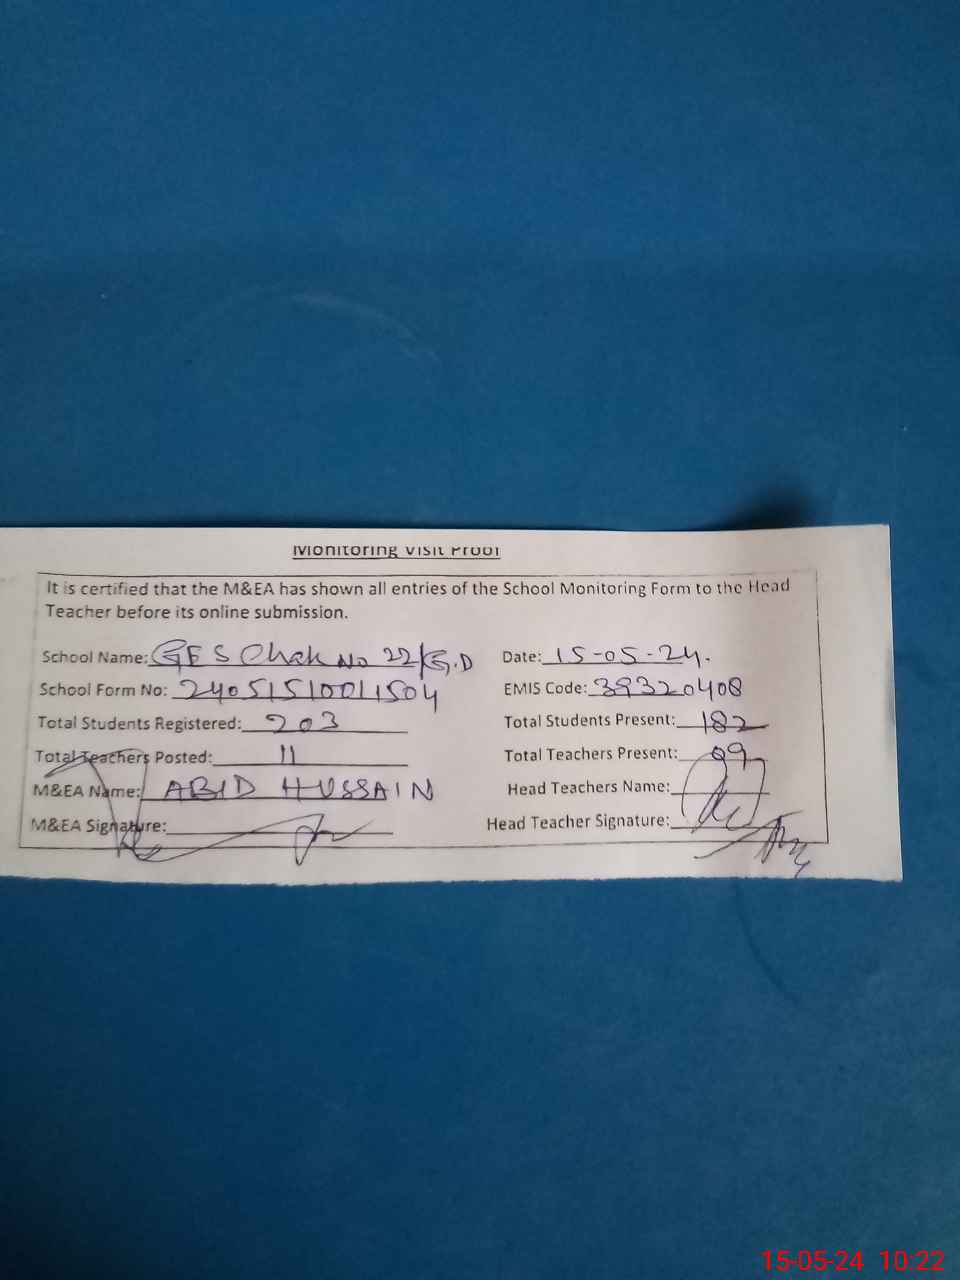 Monitoring Visit Proof
It is certified that the M&EA has shown all entries of the School Monitoring Form to the Head
Teacher before its online submission.
School Name: GES Chak No 22/G.D Date: 15-05-24.
School Form No: 24051510011504 EMIS Code: 39320408
Total Students Registered: 203 Total Students Present: 182
Total Teachers Posted: 11 Total Teachers Present: 09
M&EA Name: ABID HUSSAIN Head Teachers Name:
M&EA Signature: Head Teacher Signature:
15-05-24 10:22